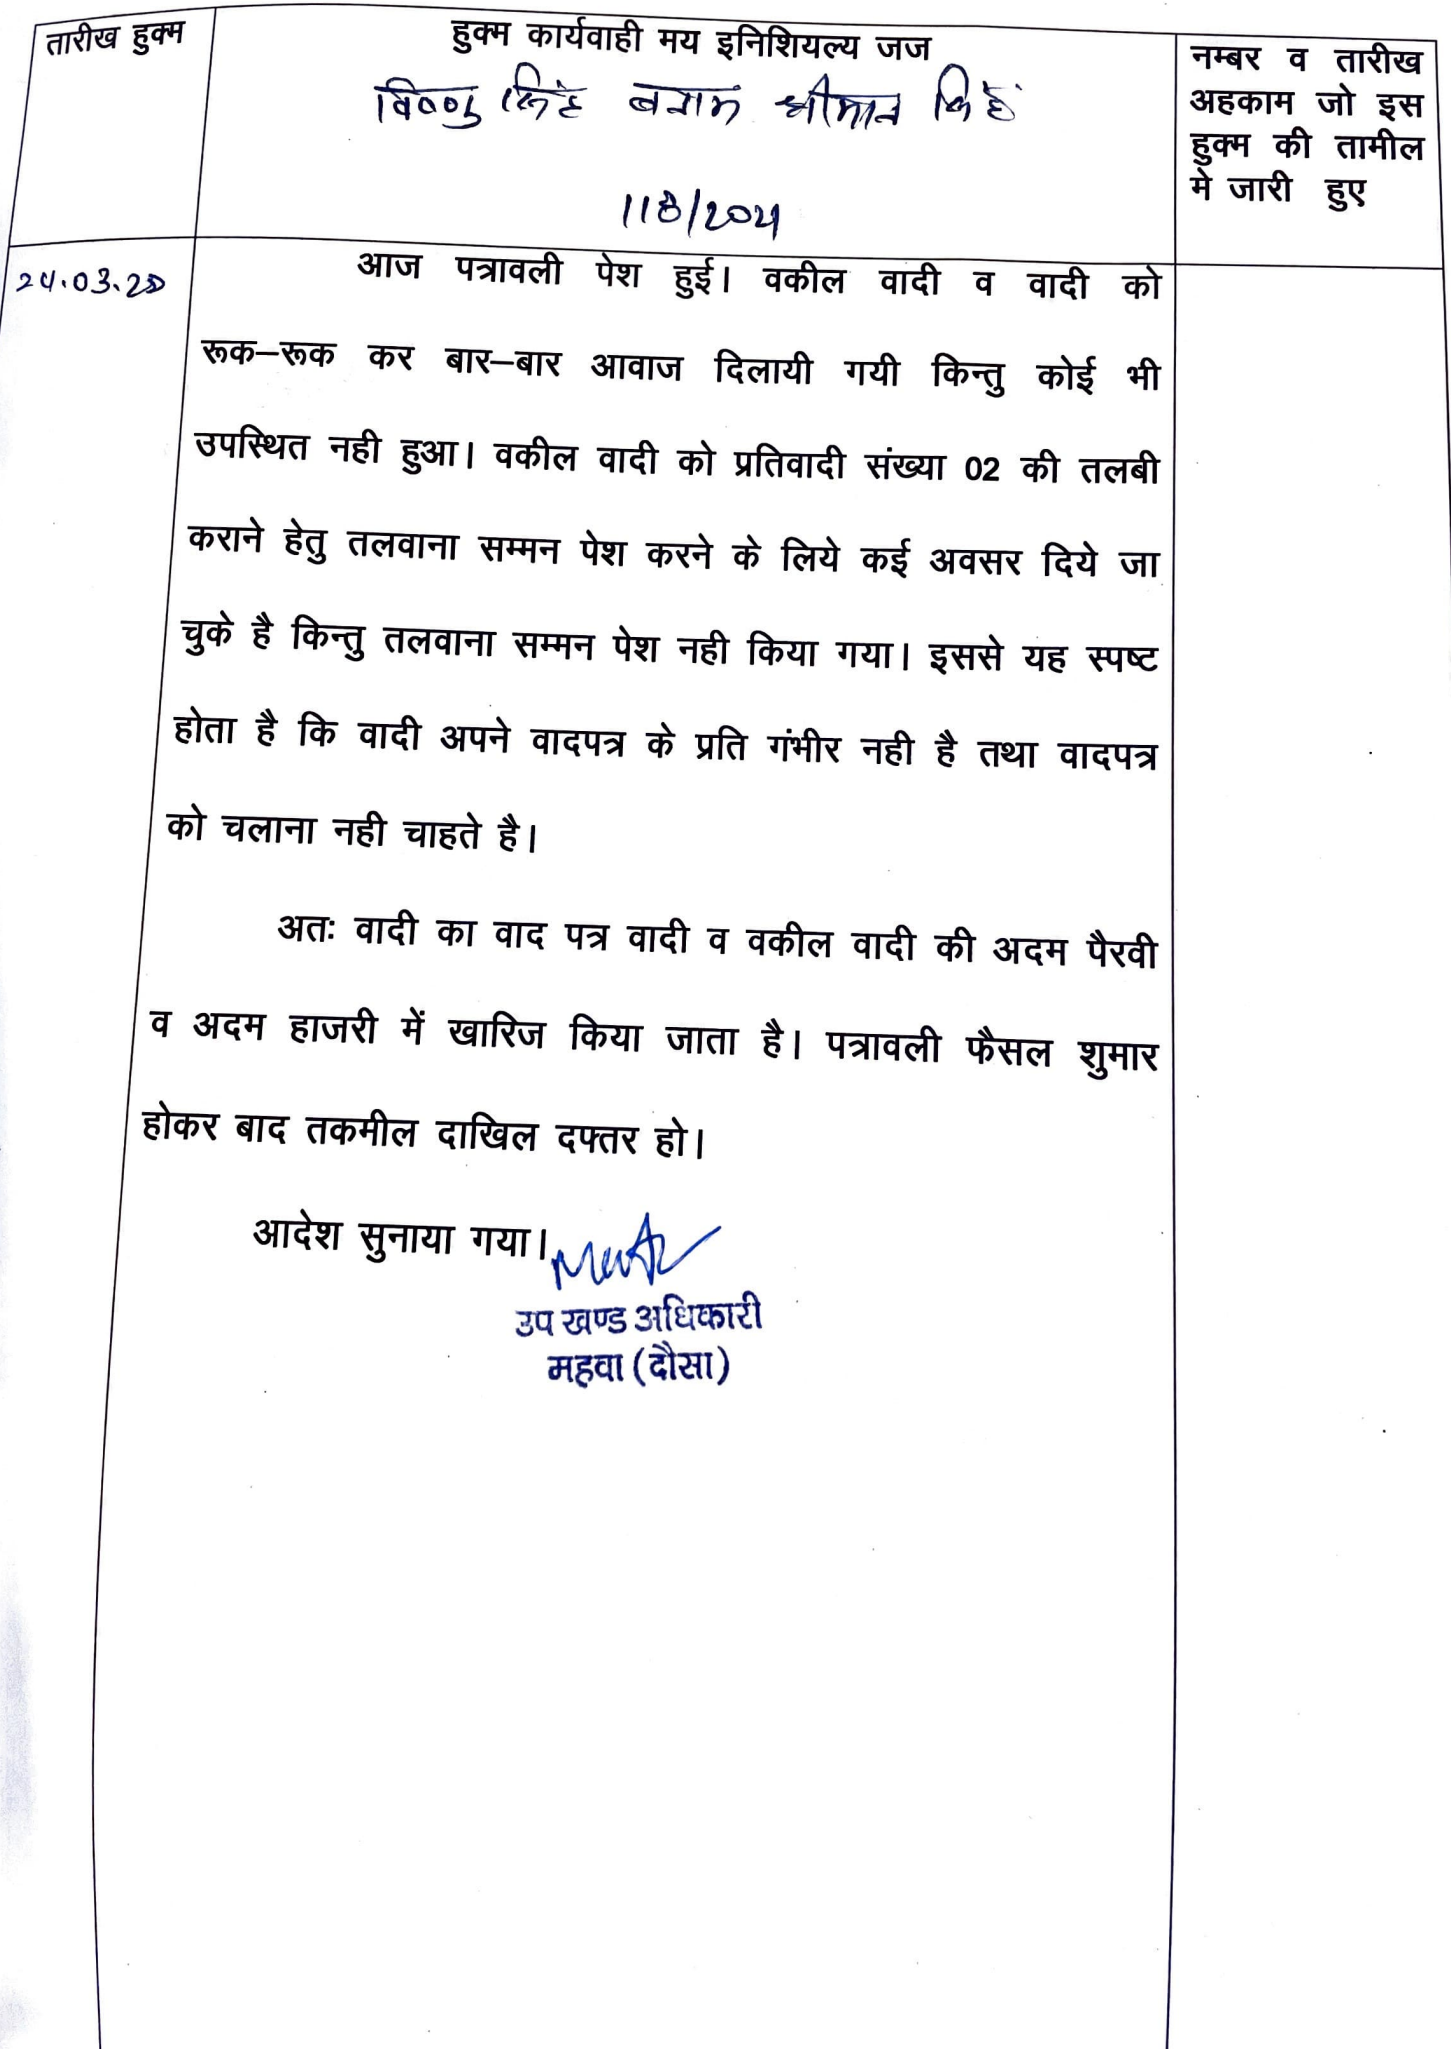 तारीख हुक्म
हुक्म कार्यवाही मय इनिशियल्य जज
विष्णु सिंह बनाम श्रीमान सिंह
118/2021
नम्बर व तारीख
अहकाम जो इस
हुक्म की तामील
मे जारी हुए
24.03.25
आज पत्रावली पेश हुई। वकील वादी व वादी को
रूक–रूक कर बार–बार आवाज दिलायी गयी किन्तु कोई भी
उपस्थित नही हुआ। वकील वादी को प्रतिवादी संख्या 02 की तलबी
कराने हेतु तलवाना सम्मन पेश करने के लिये कई अवसर दिये जा
चुके है किन्तु तलवाना सम्मन पेश नही किया गया। इससे यह स्पष्ट
होता है कि वादी अपने वादपत्र के प्रति गंभीर नही है तथा वादपत्र
को चलाना नही चाहते है।
अतः वादी का वाद पत्र वादी व वकील वादी की अदम पैरवी
व अदम हाजरी में खारिज किया जाता है। पत्रावली फैसल शुमार
होकर बाद तकमील दाखिल दफ्तर हो।
आदेश सुनाया गया।
उप खण्ड अधिकारी
महवा (दौसा)